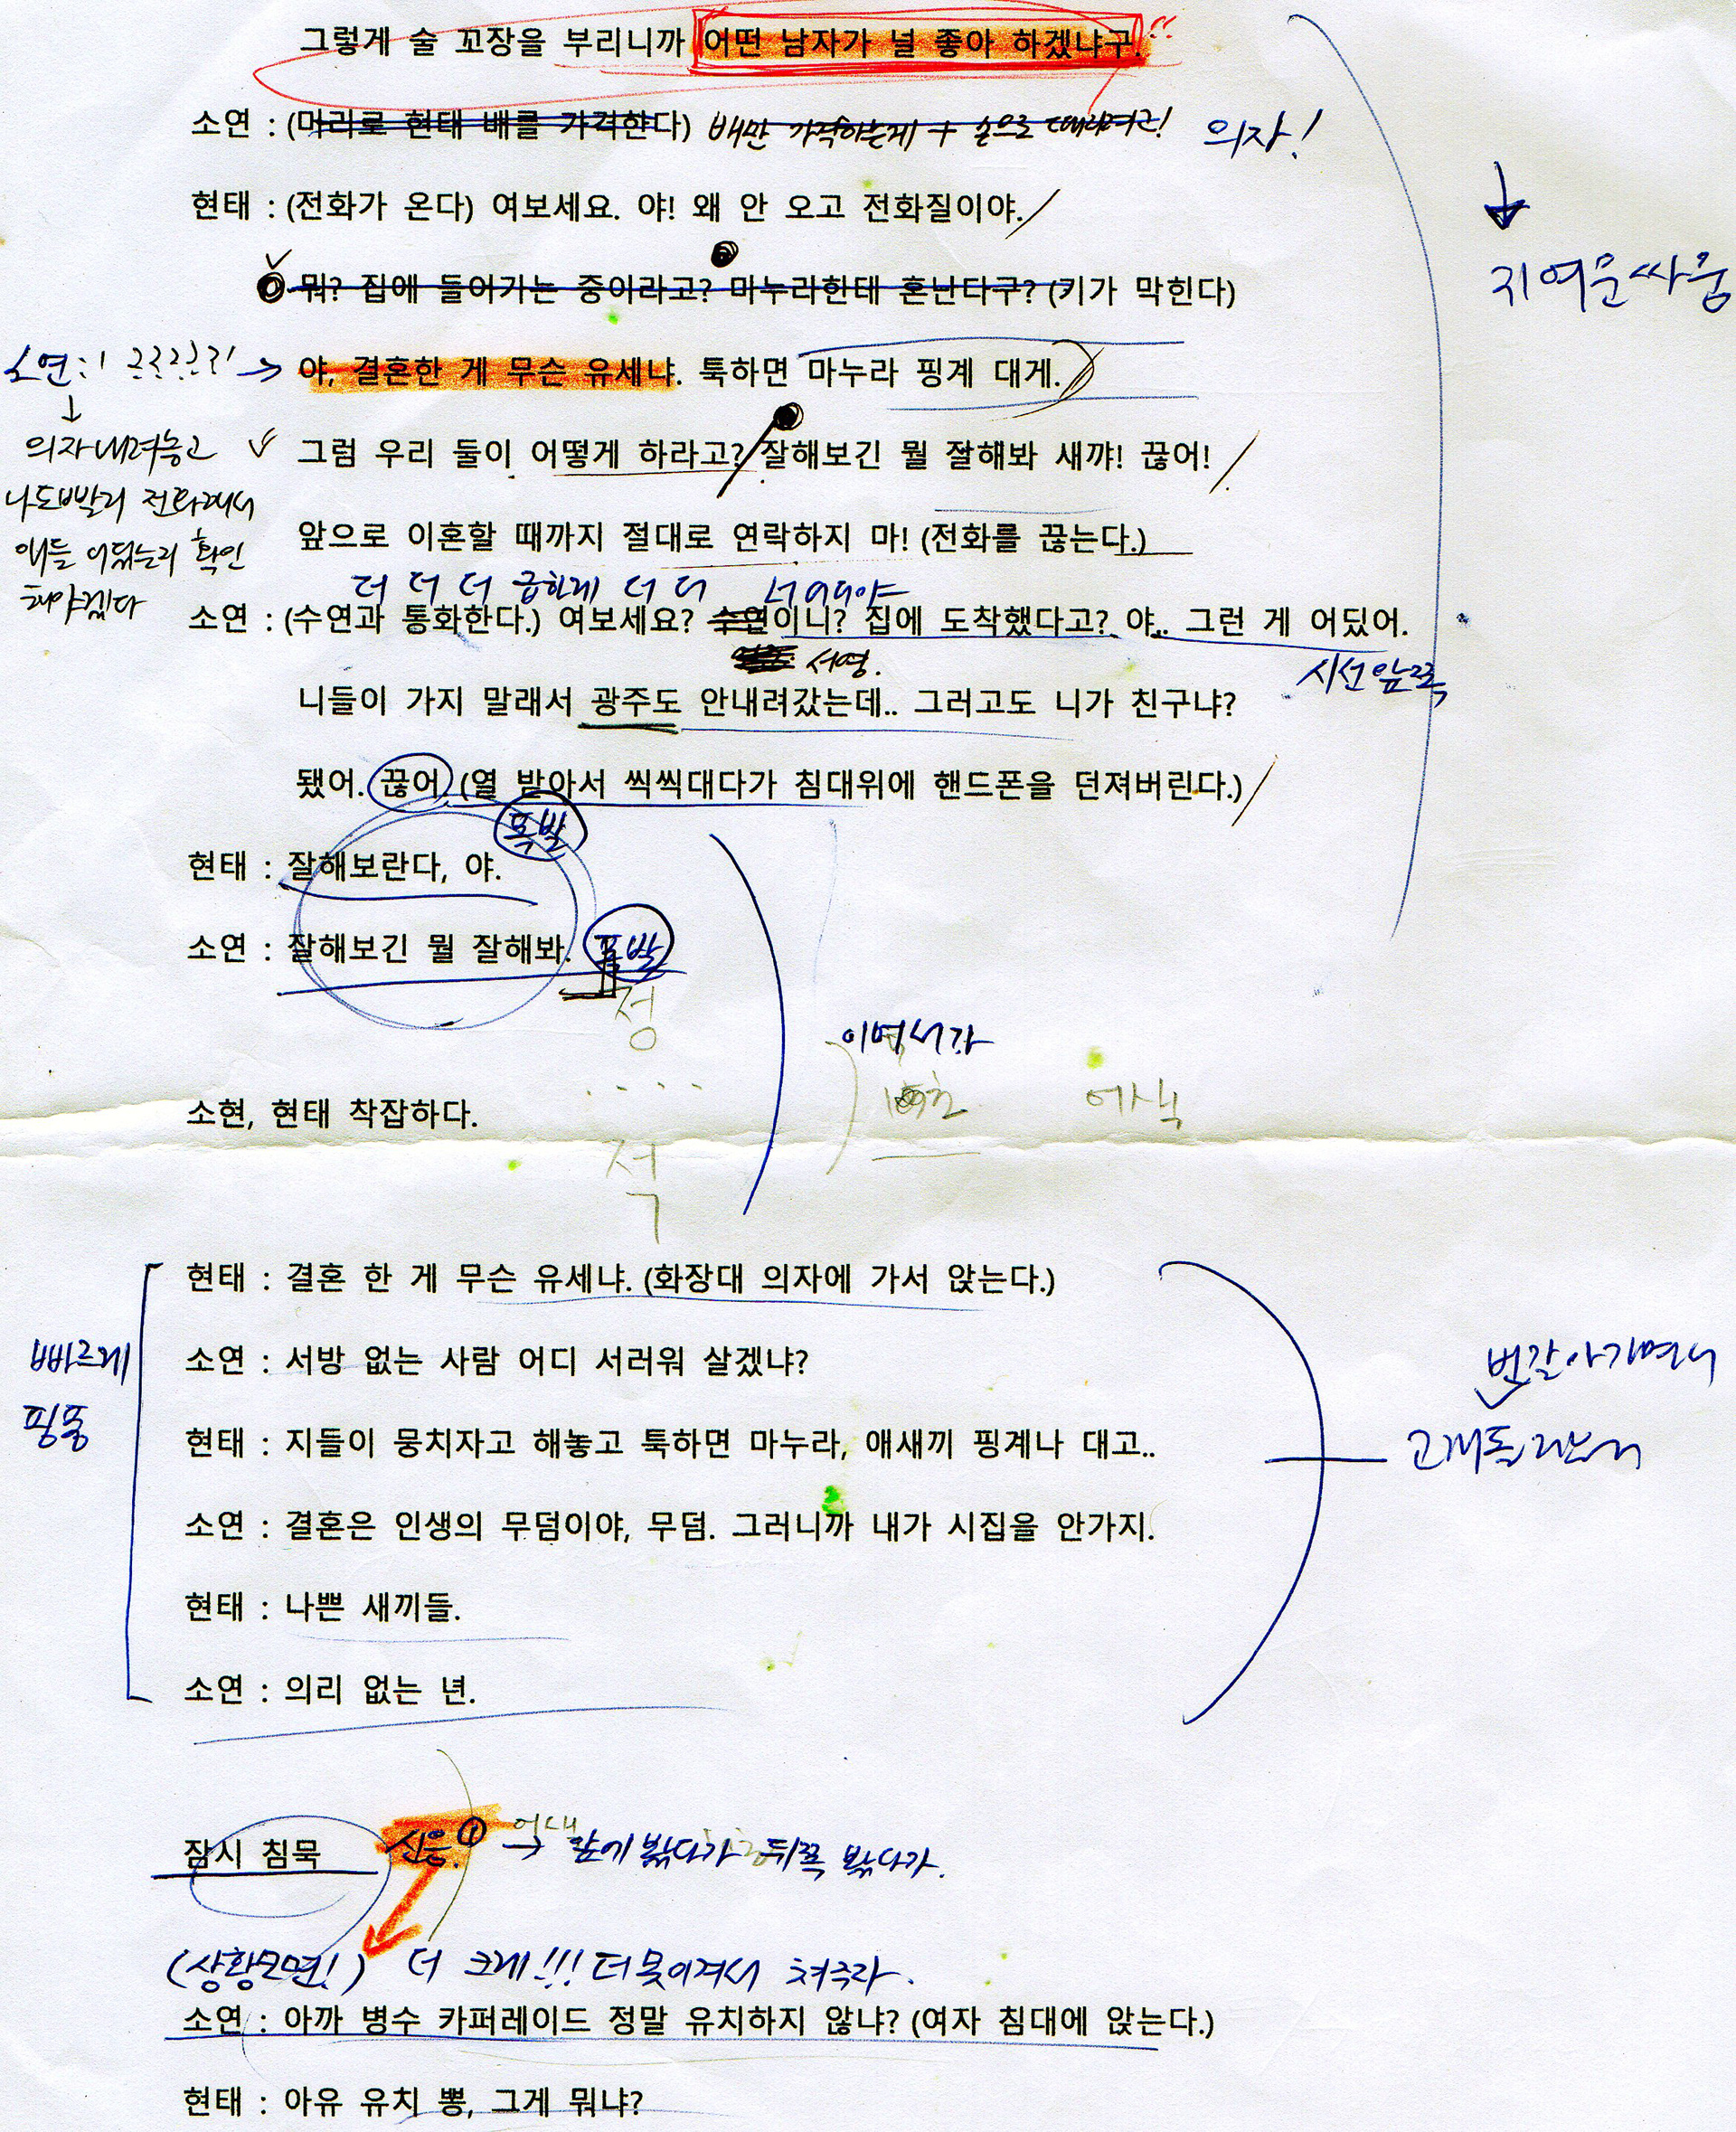 그렇게 술 꼬장을 부리니까 어떤 남자가 널 좋아 하겠냐구.!!
소연 : (머리로 현태 배를 가격한다) 배만 가격하는게 + 손으로 때리려고!
의자!
현태 : (전화가 온다) 여보세요. 야! 왜 안 오고 전화질이야.
뭐? 집에 들어가는 중이라고? 마누라한테 혼난다구? (키가 막힌다)
소연 : !
→ 야, 결혼한 게 무슨 유세냐. 툭하면 마누라 핑계 대게.
↓
의자내려놓고
나도빨리 전화해서
애들 어딨는지 확인
해야겠다
그럼 우리 둘이 어떻게 하라고? 잘해보긴 뭘 잘해봐 새꺄! 끊어!
앞으로 이혼할 때까지 절대로 연락하지 마! (전화를 끊는다.)
더 더 더 급하게 더 더 너 어디야
소연 : (수연과 통화한다.) 여보세요? 수연이니? 집에 도착했다고? 야.. 그런 게 어딨어.
서영.
시선앞쪽
니들이 가지 말래서 광주도 안내려갔는데.. 그러고도 니가 친구냐?
됐어. 끊어 (열 받아서 씩씩대다가 침대위에 핸드폰을 던져버린다.)
폭발
현태 : 잘해보란다, 야.
소연 : 잘해보긴 뭘 잘해봐. 폭발
정
....
적
이어서가
어색
소현, 현태 착잡하다.
현태 : 결혼 한 게 무슨 유세냐. (화장대 의자에 가서 앉는다.)
빠르게
핑퐁
소연 : 서방 없는 사람 어디 서러워 살겠냐?
번갈아가면서
현태 : 지들이 뭉치자고 해놓고 툭하면 마누라, 애새끼 핑계나 대고..
소연 : 결혼은 인생의 무덤이야, 무덤. 그러니까 내가 시집을 안가지.
현태 : 나쁜 새끼들.
소연 : 의리 없는 년.
잠시 침묵 신음.① → 앞에 봤다가 뒤쪽 봤다가.
(상황모면!) 더 크게!!! 더 못이겨서 쳐주라.
소연 : 아까 병수 카퍼레이드 정말 유치하지 않냐? (여자 침대에 앉는다.)
현태 : 아유 유치 뽕, 그게 뭐냐?